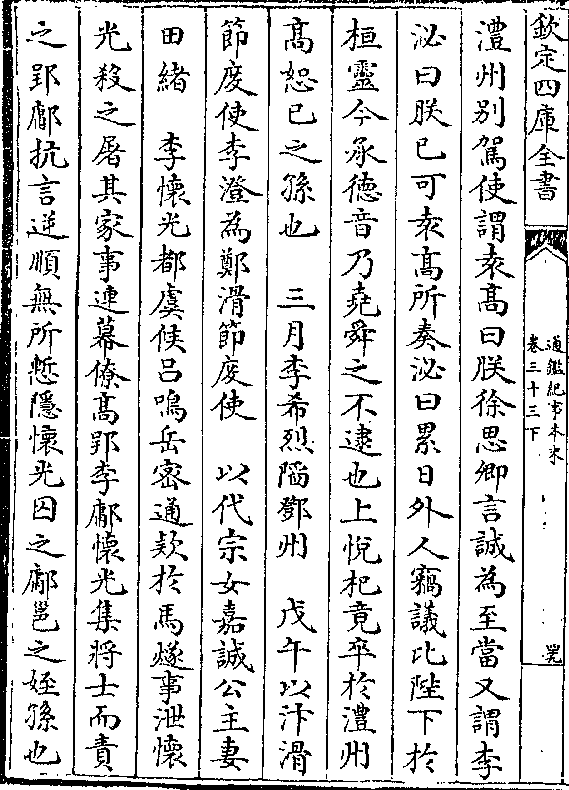 欽定四庫全書
通鑑紀事本末
卷三十三下
罢
澧州别駕使謂袁髙曰朕徐思卿言誠為至當又謂李
泌曰朕已可袁髙所奏泌曰累日外人竊議比陛下於
桓靈今承徳音乃堯舜之不逮也上悅杞竟卒於澧州
髙恕已之孫也　三月李希烈陷鄧州　戊午以汴滑
節度使李澄為鄭滑節度使　以代宗女嘉誠公主妻
田緒　李懷光都虞候呂鳴岳密通欵於馬燧事泄懷
光殺之屠其家事連幕僚髙郢李鄘懷光集將士而責
之郢鄘抗言逆順無所慙隱懷光囚之鄘邕之姪孫也